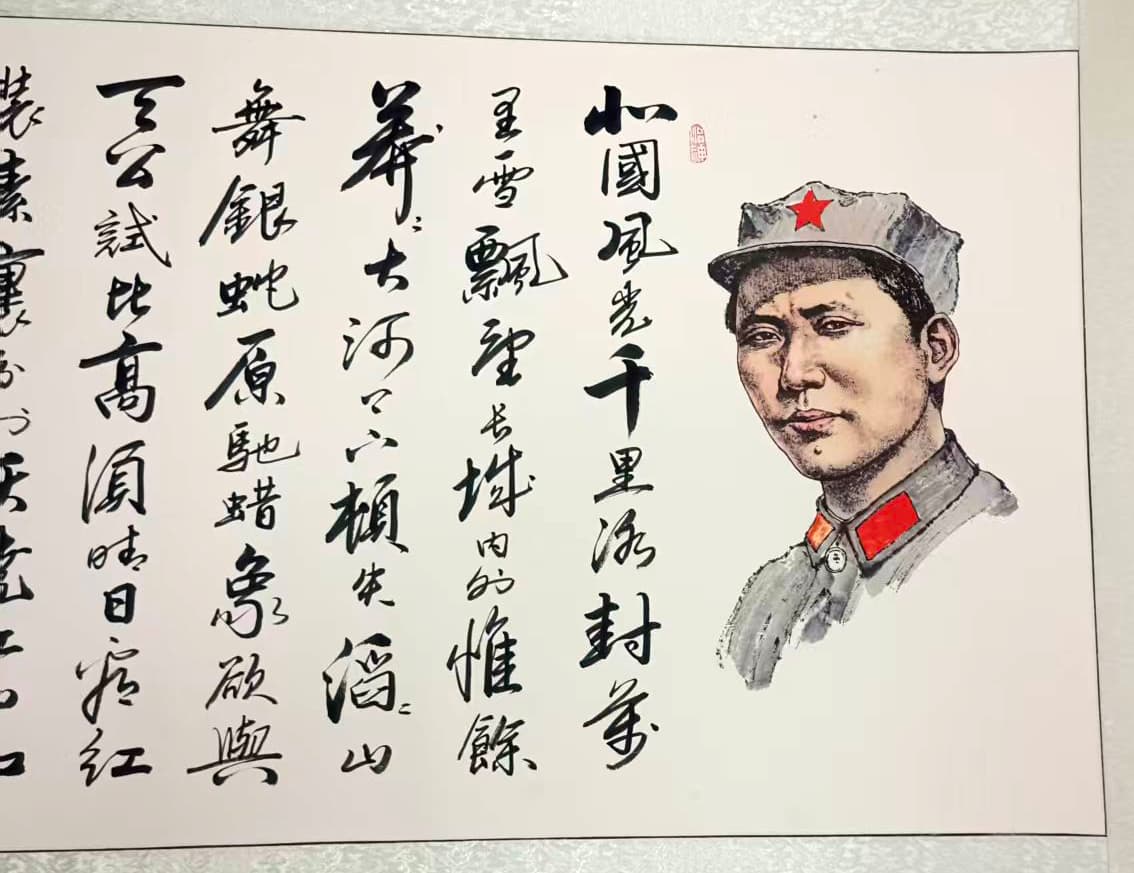 北國風光千里冰封萬
里雪飄望长城内外惟餘
莽〻大河上下頓失滔〻山
舞銀蛇原馳蜡象欲與
天公試比高須晴日看紅
裝素裹分外妖嬈江山如